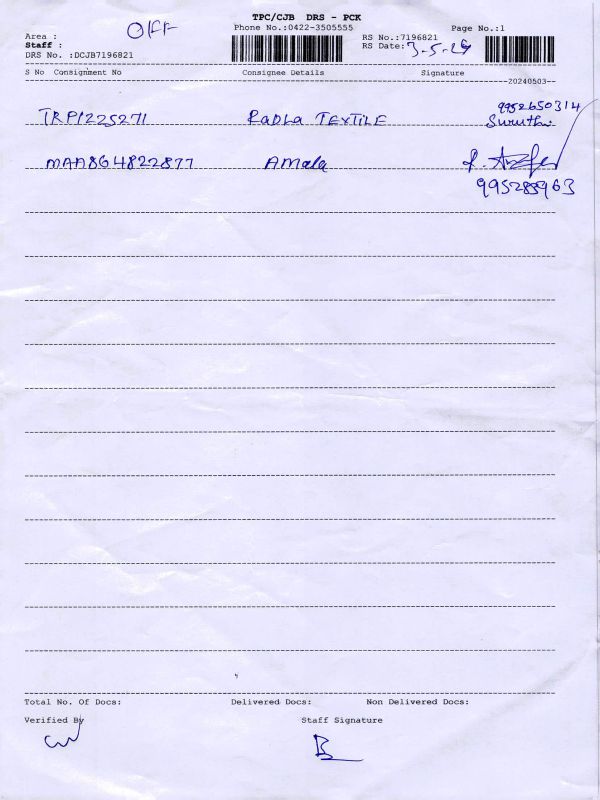 TPC/CJB DRS - PCK
Area : OFF Phone No.:0422-3505555 RS No.:7196821 Page No.:1
Staff : RS Date:3-5-24
DRS No. :DCJB7196821
S No Consignment No Consignee Details Signature
20240503
9952650314
TRP1225271 RADLA TEXTILE Suruthi
MAA864822877 AMala
995285963
Total No. Of Docs: Delivered Docs: Non Delivered Docs:
Verified By Staff Signature